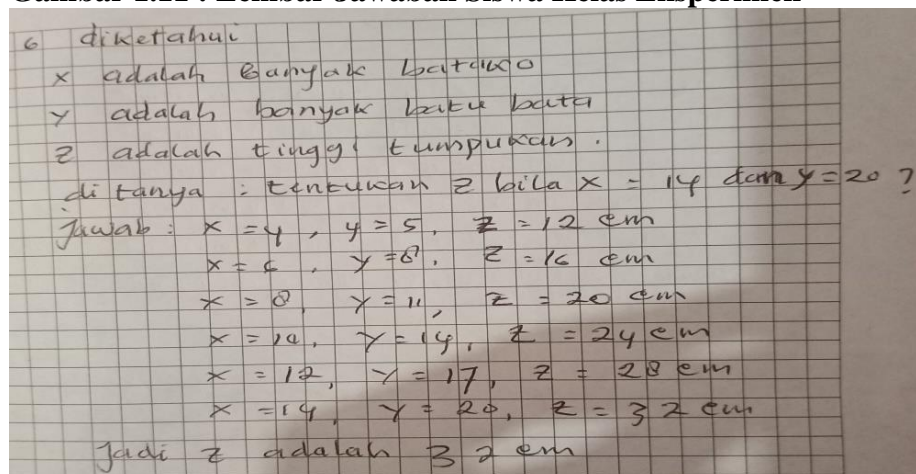 6 diketahui
x adalah Banyak batako
y adalah banyak batu bata
z adalah tinggi tumpukan.
di tanya : tentukan z bila x = 14 dan y = 20 ?
Jawab : x = 4, y = 5, z = 12 cm
x = 6, y = 8, z = 16 cm
x = 8, y = 11, z = 20 cm
x = 10, y = 14, z = 24 cm
x = 12, y = 17, z = 28 cm
x = 14, y = 20, z = 32 cm
Jadi z adalah 32 cm